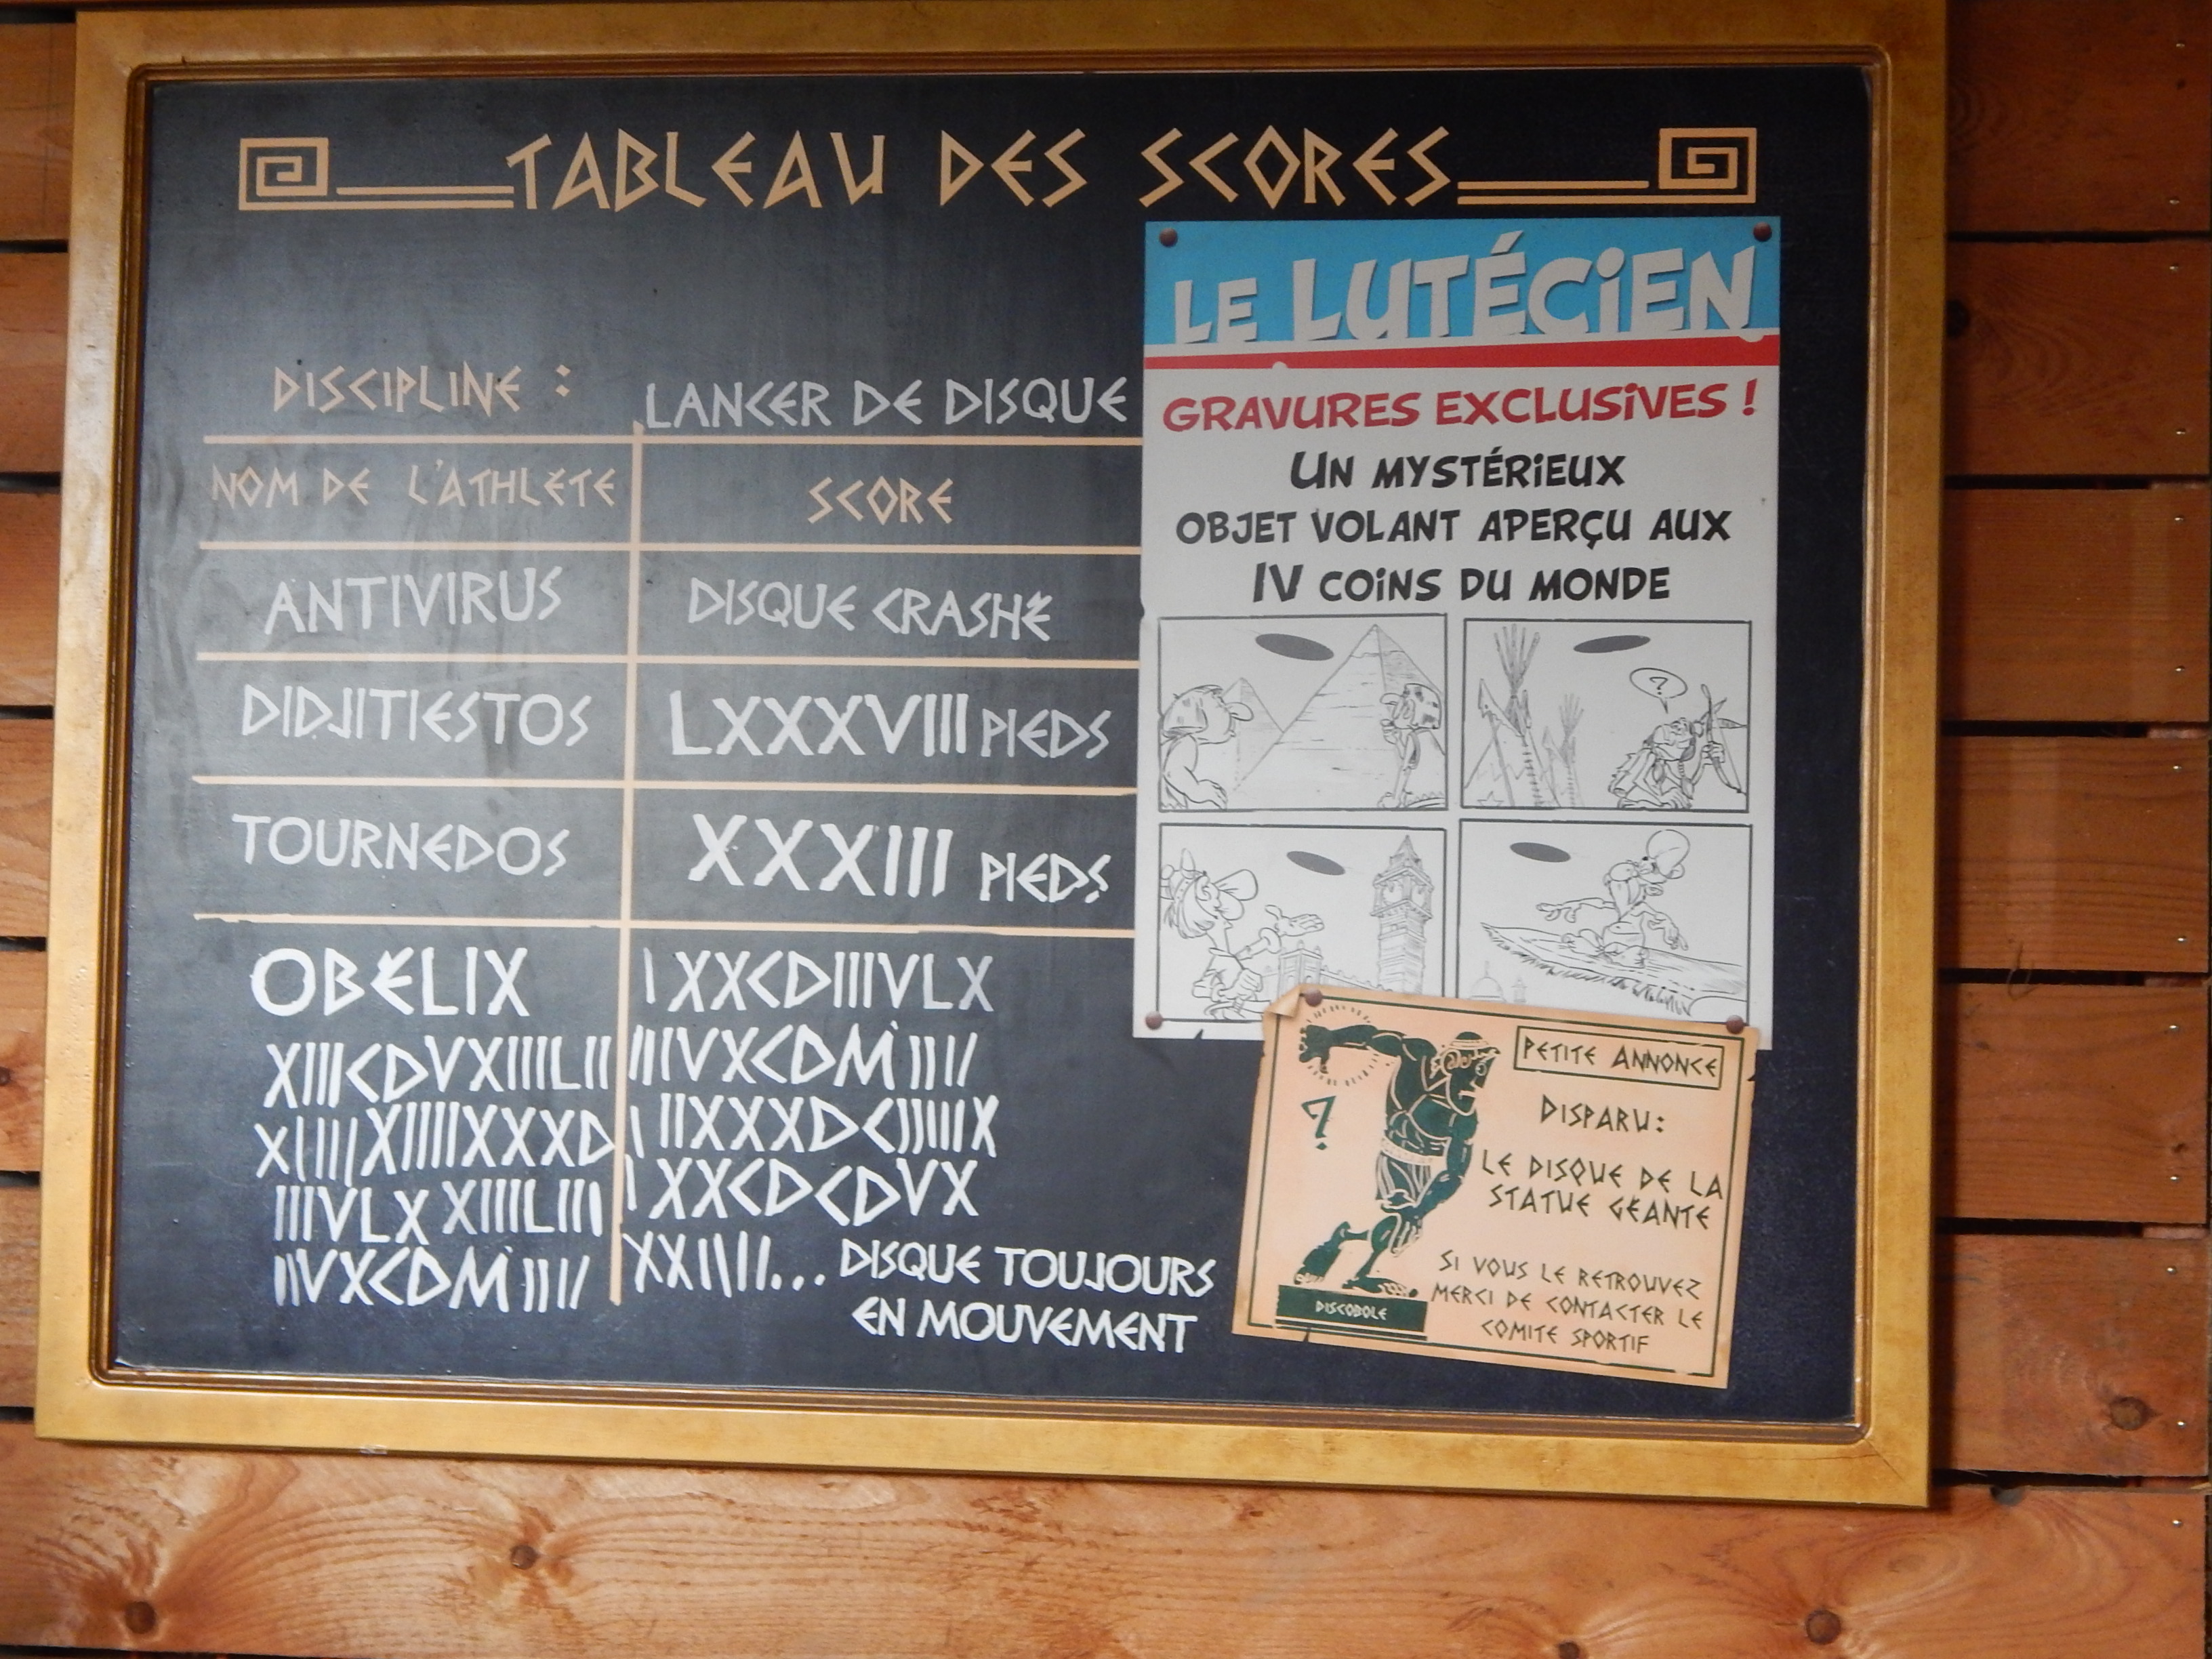 TABLEAU DES SCORES
DISCIPLINE : LANCER DE DISQUE
NOM DE L'ATHLETE SCORE
ANTIVIRUS DISQUE CRASHÉ
DIDJITIESTOS LXXXVIII PIEDS
TOURNEDOS XXXIII PIEDS
OBELIX IXXCDIIIVLX
XIIICDVXIIILII IIIVXCDM IIII
XIIIIXIIIIXXXD IIIXXXDCIIIIIX
IIIVLX XIIILIII IXXCDCDVX
IIVXCDM IIII XXIIII... DISQUE TOUJOURS
EN MOUVEMENT
LE LUTÉCIEN
GRAVURES EXCLUSIVES !
UN MYSTÉRIEUX
OBJET VOLANT APERÇU AUX
IV COINS DU MONDE
?
PETITE ANNONCE
?
DISPARU:
LE DISQUE DE LA
STATUE GÉANTE
SI VOUS LE RETROUVEZ
MERCI DE CONTACTER LE
COMITE SPORTIF
DISCOBOLE